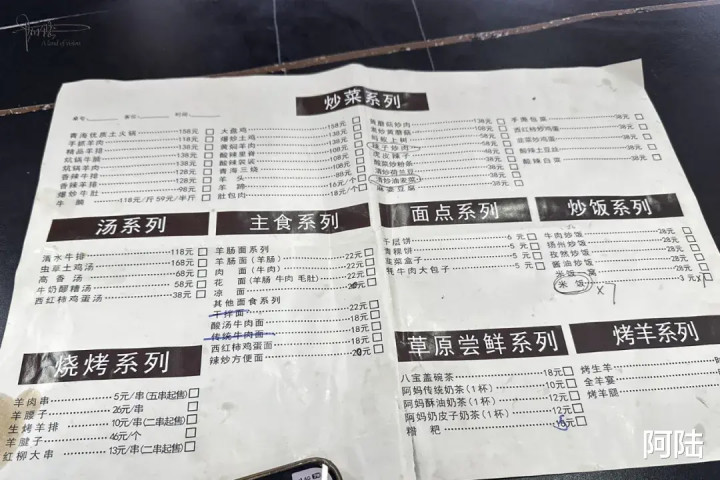 炒菜系列
青海优质土火锅 158元
手抓羊肉 118元
精品羊排 138元
炕锅牛腩 138元
炕锅羊肉 138元
香辣牛排 128元
香辣羊排 128元
爆炒牛肚 98元
牛腩 118元/斤 59元/半斤
大盘鸡 158元
爆炒土鸡 158元
黄焖羊肉 138元
酸辣里脊 108元
酸辣
青海三烧 108元
羊头 88元
羊蹄 16元/个
肚包肉 18元/个
黄蘑菇炒肉
素炒黄蘑菇
辣子炒肉
虎皮辣子
酸菜炒粉条
清炒荷兰豆
清炒油麦菜
麻婆豆腐
手撕包菜 38元
西红柿炒鸡蛋 38元
韭菜炒鸡蛋 38元
酸辣土豆丝 38元
酸辣白菜 38元
汤系列
清水牛排 118元
虫草土鸡汤 168元
高香汤 68元
牛奶醪糟汤 58元
西红柿鸡蛋汤 38元
主食系列
羊肠面系列
羊肠面(羊肠) 22元
肉面(牛肉) 22元
花面(羊肠 牛肉 毛肚) 22元
凉面
其他面食系列
干拌面 22元
酸汤牛肉面 18元
传统牛肉面 18元
西红柿鸡蛋面 18元
辣炒方便面
面点系列
千层饼 6元
青稞饼 5元
韭菜盒子 5元
牦牛肉大包子 5元
炒饭系列
牛肉炒饭 28元
扬州炒饭 28元
孜然炒饭 28元
酱油炒饭 28元
米饭 3元
x7
烧烤系列
羊肉串 5元/串(五串起售)
羊腰子 26元/串
生烤羊排 10元/串(二串起售)
羊腱子 46元/个
红柳大串 13元/串(二串起售)
草原尝鲜系列
八宝盖碗茶 18元
阿妈传统奶茶(1杯) 10元
阿妈酥油奶茶(1杯) 12元
阿妈奶皮子奶茶(1杯) 12元
糌粑
烤羊系列
烤全羊
金羊宴
烤羊腿
阿陆